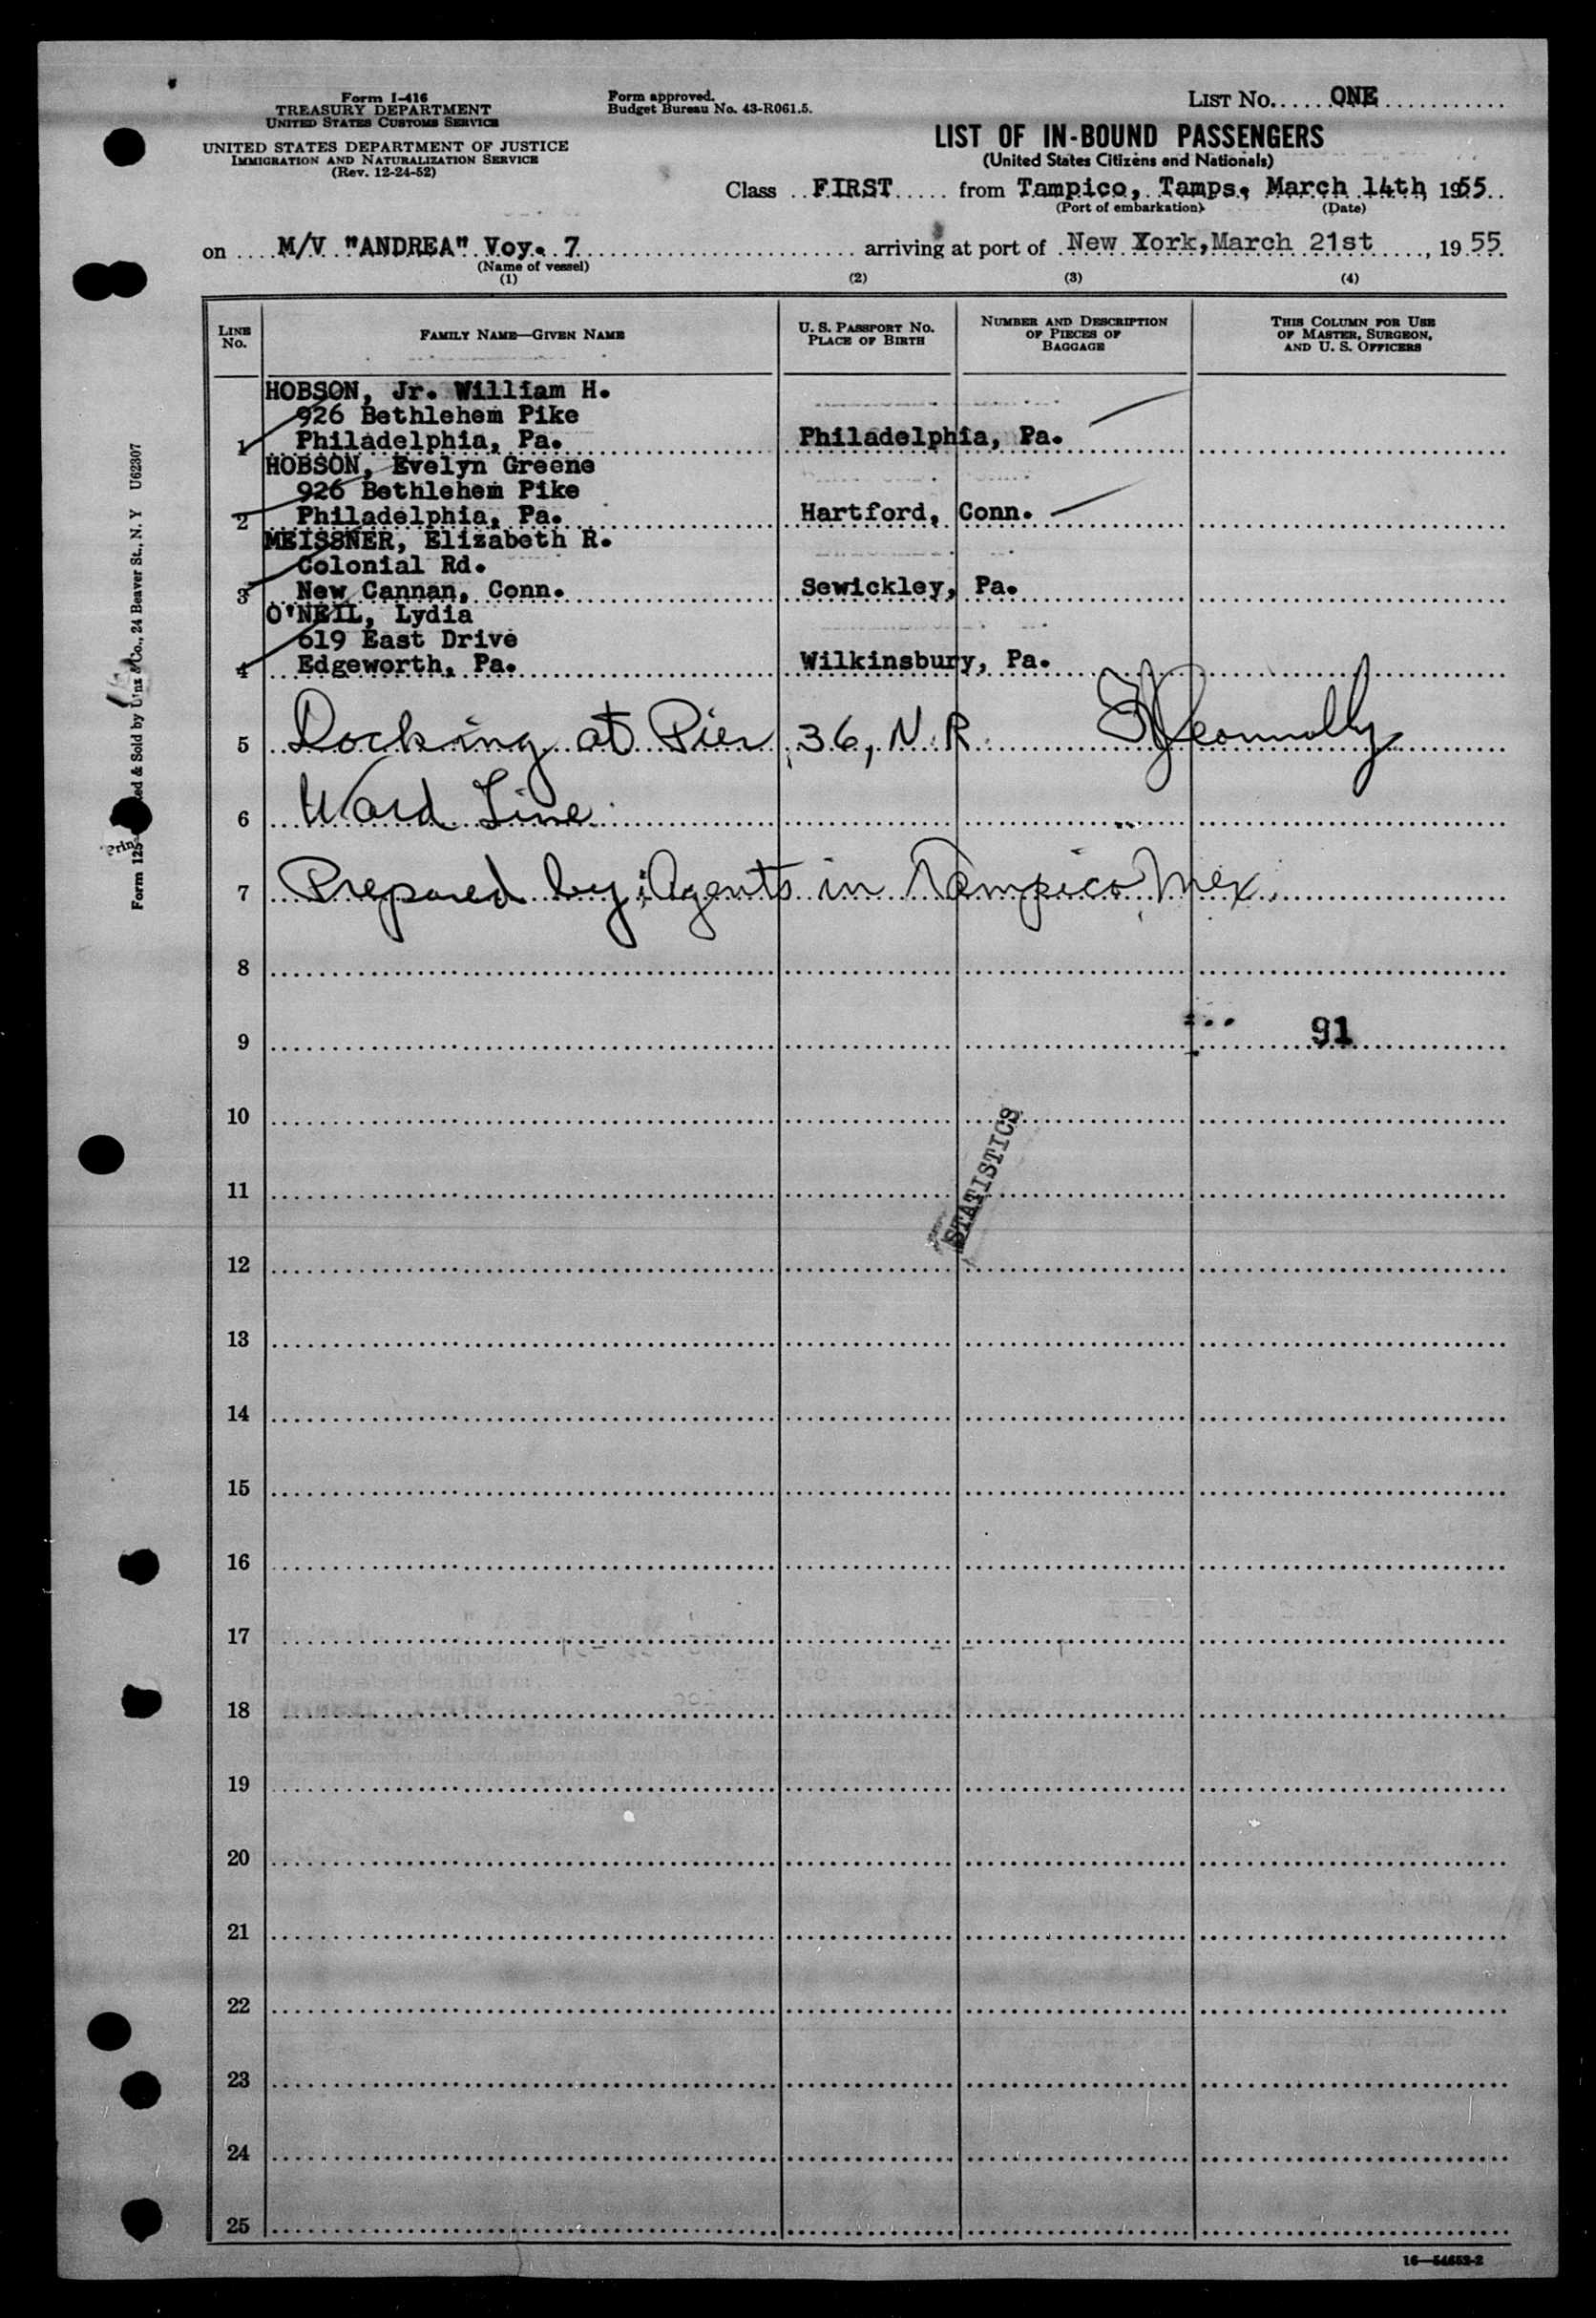 Form I-416
TREASURY DEPARTMENT
UNITED STATES CUSTOMS SERVICE
UNITED STATES DEPARTMENT OF JUSTICE
IMMIGRATION AND NATURALIZATION SERVICE
(Rev. 12-24-52)
Form approved.
Budget Bureau No. 43-R061.5.
LIST NO. ONE
LIST OF IN-BOUND PASSENGERS
(United States Citizens and Nationals)
Class FIRST from Tampico, Tamps. March 14th, 1955
(Port of embarkation) (Date)
on M/V "ANDREA" Voy. 7 arriving at port of New York, March 21st, 1955
(Name of vessel)
(1) (2) (3) (4)
LINE NO. FAMILY NAME—GIVEN NAME U. S. PASSPORT NO. PLACE OF BIRTH NUMBER AND DESCRIPTION OF PIECES OF BAGGAGE THIS COLUMN FOR USE OF MASTER, SURGEON, AND U. S. OFFICERS
HOBSON, Jr. William H.
926 Bethlehem Pike
1 Philadelphia, Pa. Philadelphia, Pa.
HOBSON, Evelyn Greene
926 Bethlehem Pike
2 Philadelphia, Pa. Hartford, Conn.
MEISSNER, Elizabeth R.
Colonial Rd.
3 New Cannan, Conn. Sewickley, Pa.
O'NEIL, Lydia
619 East Drive
4 Edgeworth, Pa. Wilkinsbury, Pa.
5 Docking at Pier 36, N.R. Connolly
6 Ward Line
7 Prepared by Agents in Tampico, Mex.
8
9 91
10
STATISTICS
11
12
13
14
15
16
17
18
19
20
21
22
23
24
25
Form 125 & Sold by Unz & Co., 24 Beaver St., N. Y U62307